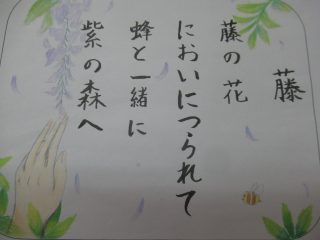 藤
藤の花
においにつられて
蜂と一緒に
紫の森へ